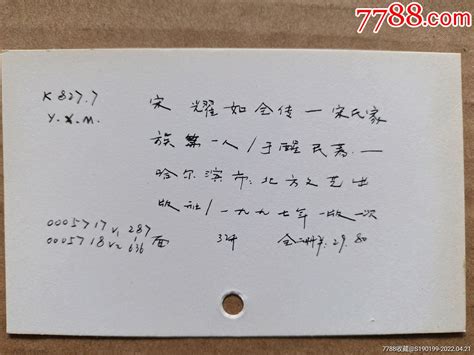 7788.com
K 827.7
Y.X.M.
宋耀如全传—宋氏家
族第一人/于醒民著.—
哈尔滨市:北方文艺出
版社/一九九七年一版一次
0005717 V1 287
0005718 V2 636 面
29.80
7788收藏@S190199-2022.04.21